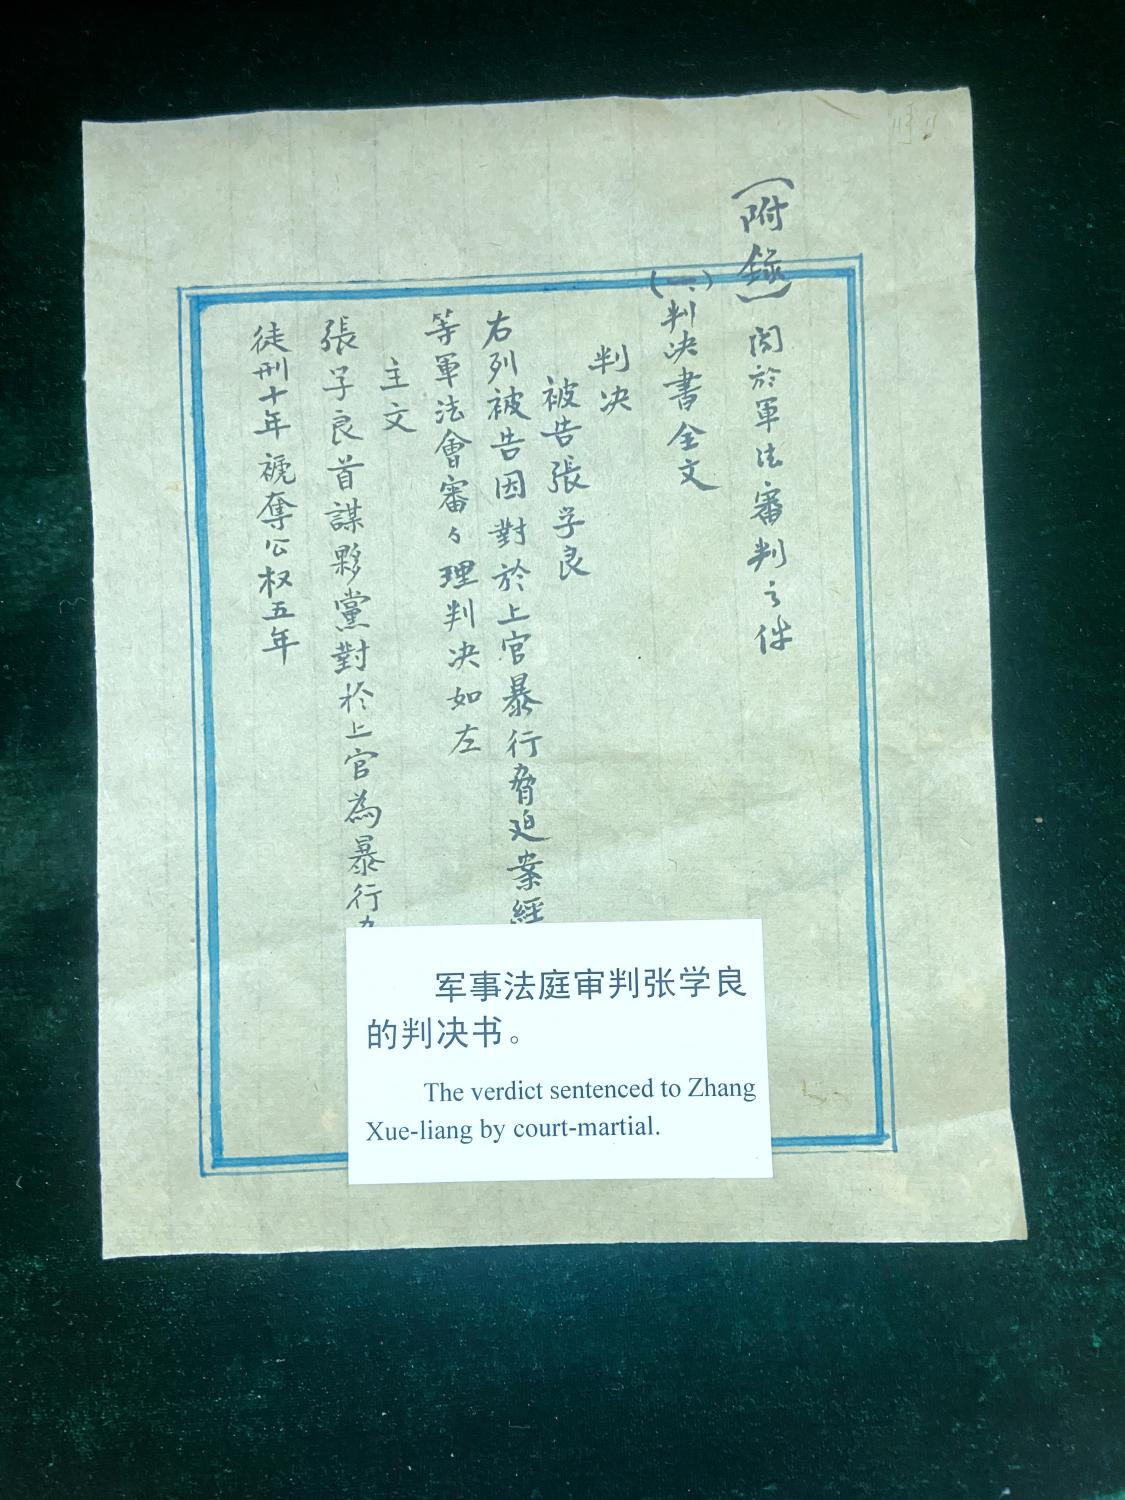 〔附錄〕關於軍法審判之件
(一)判决書全文
判决
被告張学良
右列被告因對於上官暴行脅迫案經
等軍法會審々理判决如左
主文
張学良首謀夥黨對於上官為暴行
徒刑十年褫奪公权五年
军事法庭审判张学良
的判决书。
The verdict sentenced to Zhang
Xue-liang by court-martial.